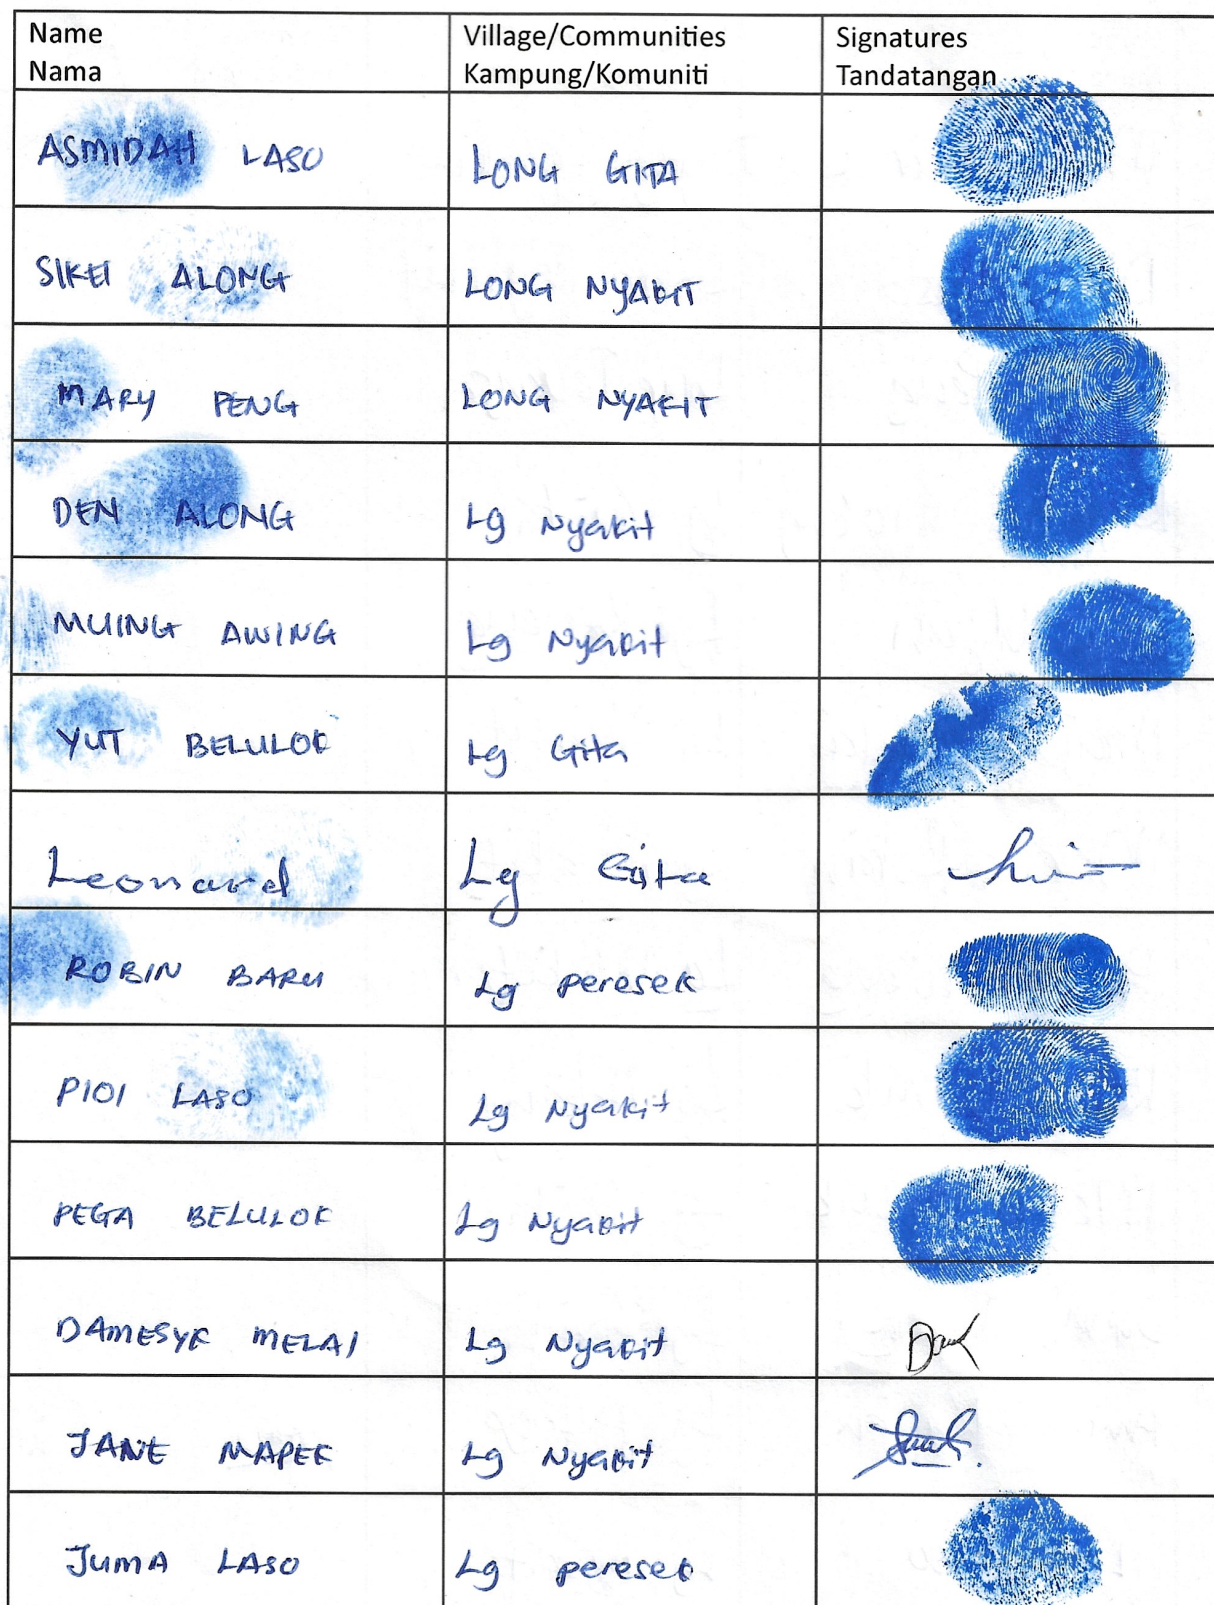 Name Village/Communities Signatures
Nama Kampung/Komuniti Tandatangan
ASMIDAH LASO LONG GITA
SIKEI ALONG LONG NYAKIT
MARY PENG LONG NYAKIT
DEN ALONG Lg Nyakit
MUING AWING Lg Nyakit
YUT BELULOK Lg Gita
Leonard Lg Gita
ROBIN BARU Lg peresek
PIOI LASO Lg Nyakit
PEGA BELULOK Lg Nyakit
DAMESYK MELAI Lg Nyakit
JANE MAPEK Lg Nyakit
JUMA LASO Lg peresek